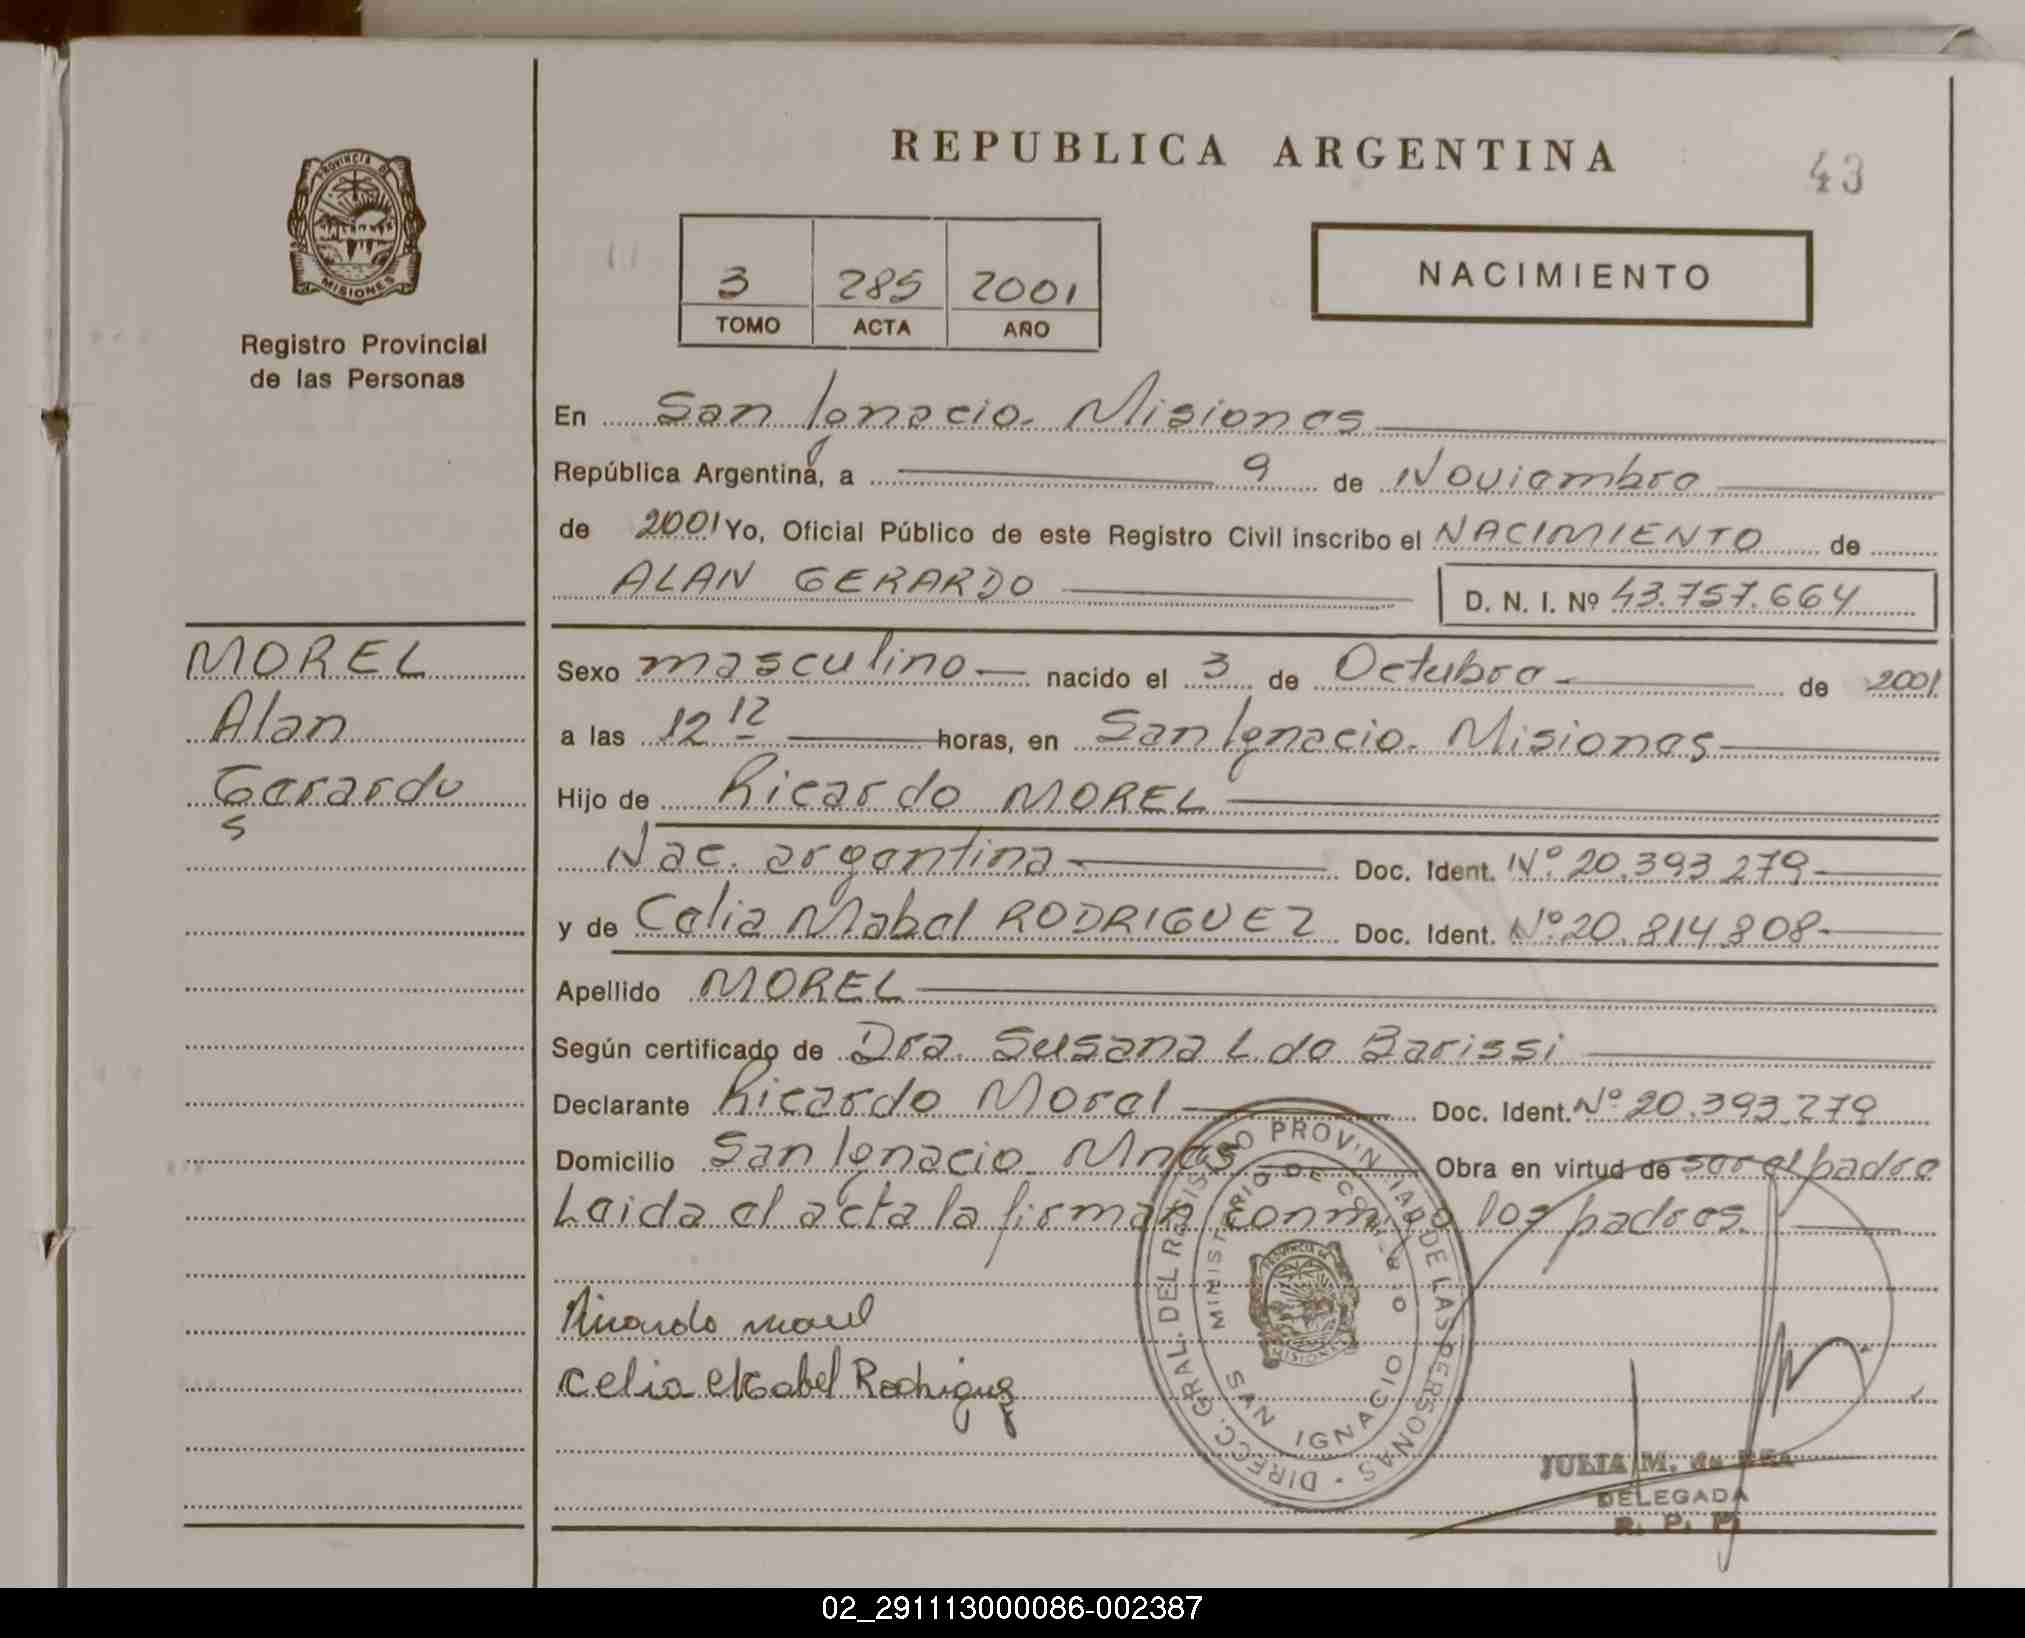 REPUBLICA ARGENTINA
43
PROVINCIA DE
MISIONES
Registro Provincial
de las Personas
3 285 2001
TOMO ACTA AÑO
NACIMIENTO
En San Ignacio. Misiones
República Argentina, a 9 de Noviembre
de 2001 Yo, Oficial Público de este Registro Civil inscribo el NACIMIENTO de
ALAN GERARDO D. N. I. Nº 43.757.664
MOREL
Alan
Gerardo
S
Sexo masculino nacido el 3 de Octubre de 2001
a las 12 12 horas, en San Ignacio. Misiones
Hijo de Ricardo MOREL
Nac. argentina Doc. Ident. Nº 20.393.279
y de Celia Mabel RODRIGUEZ Doc. Ident. Nº 20.814.808
Apellido MOREL
Según certificado de Dra. Susana L. de Barissi
Declarante Ricardo Morel Doc. Ident. Nº 20.393.279
Domicilio San Ignacio Mnes Obra en virtud de ser el padre
Leida el acta la firman conmigo los padres.
Ricardo Morel
Celia Mabel Rodriguez
DIRECC. GRAL. DEL REGISTRO PROVINCIAL DE LAS PERSONAS
MINISTERIO DE GOBIERNO
PROVINCIA DE
MISIONES
SAN IGNACIO
JULIA M. de
DELEGADA
R. P. P.
02_291113000086-002387